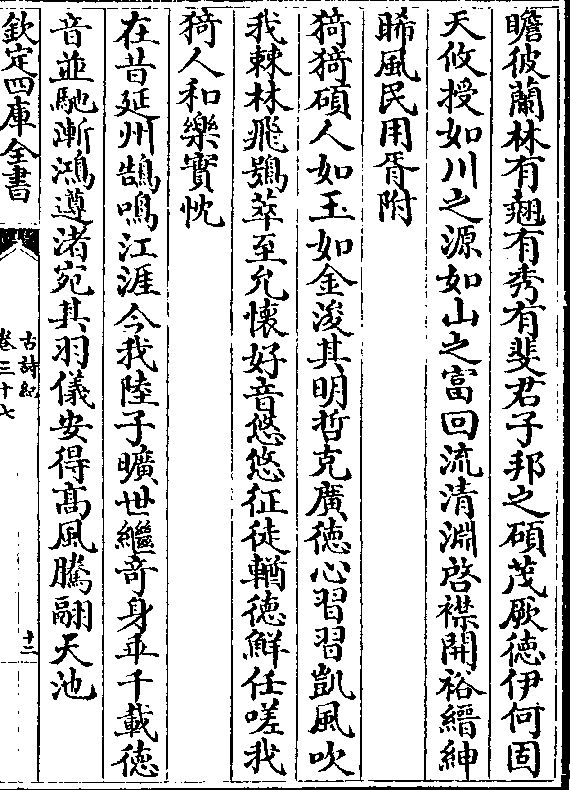 瞻彼蘭林有翹有秀有斐君子邦之碩茂厥徳伊何固
天攸授如川之源如山之富回流清淵啓襟開裕縉紳
晞風民用胥附
猗猗碩人如玉如金浚其明哲克廣徳心習習凱風吹
我棘林飛鴞萃至允懷好音悠悠征徒輶徳鮮任嗟我
猗人和樂實忱
在昔延州鵠鳴江涯今我陸子曠世繼竒身乖千載徳
音並馳漸鴻遵渚宛其羽儀安得髙風騰翮天池
欽定四庫全書
古詩紀
卷三十七
十二